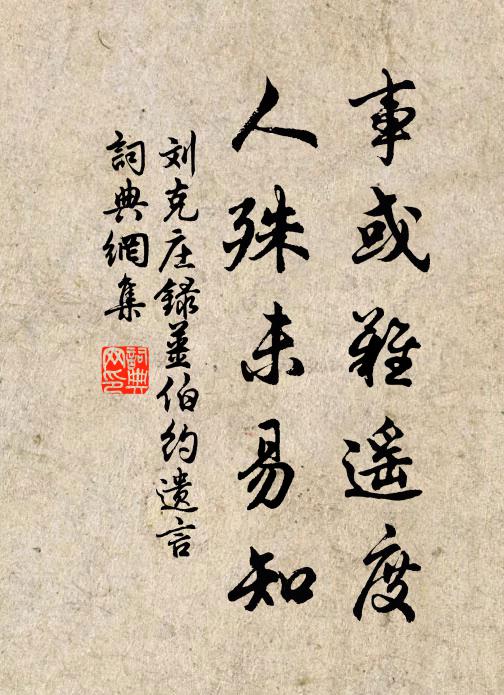 事或难遥度
人殊未易知
刘克庄録姜伯约遗言
詞典網集
詞典网印